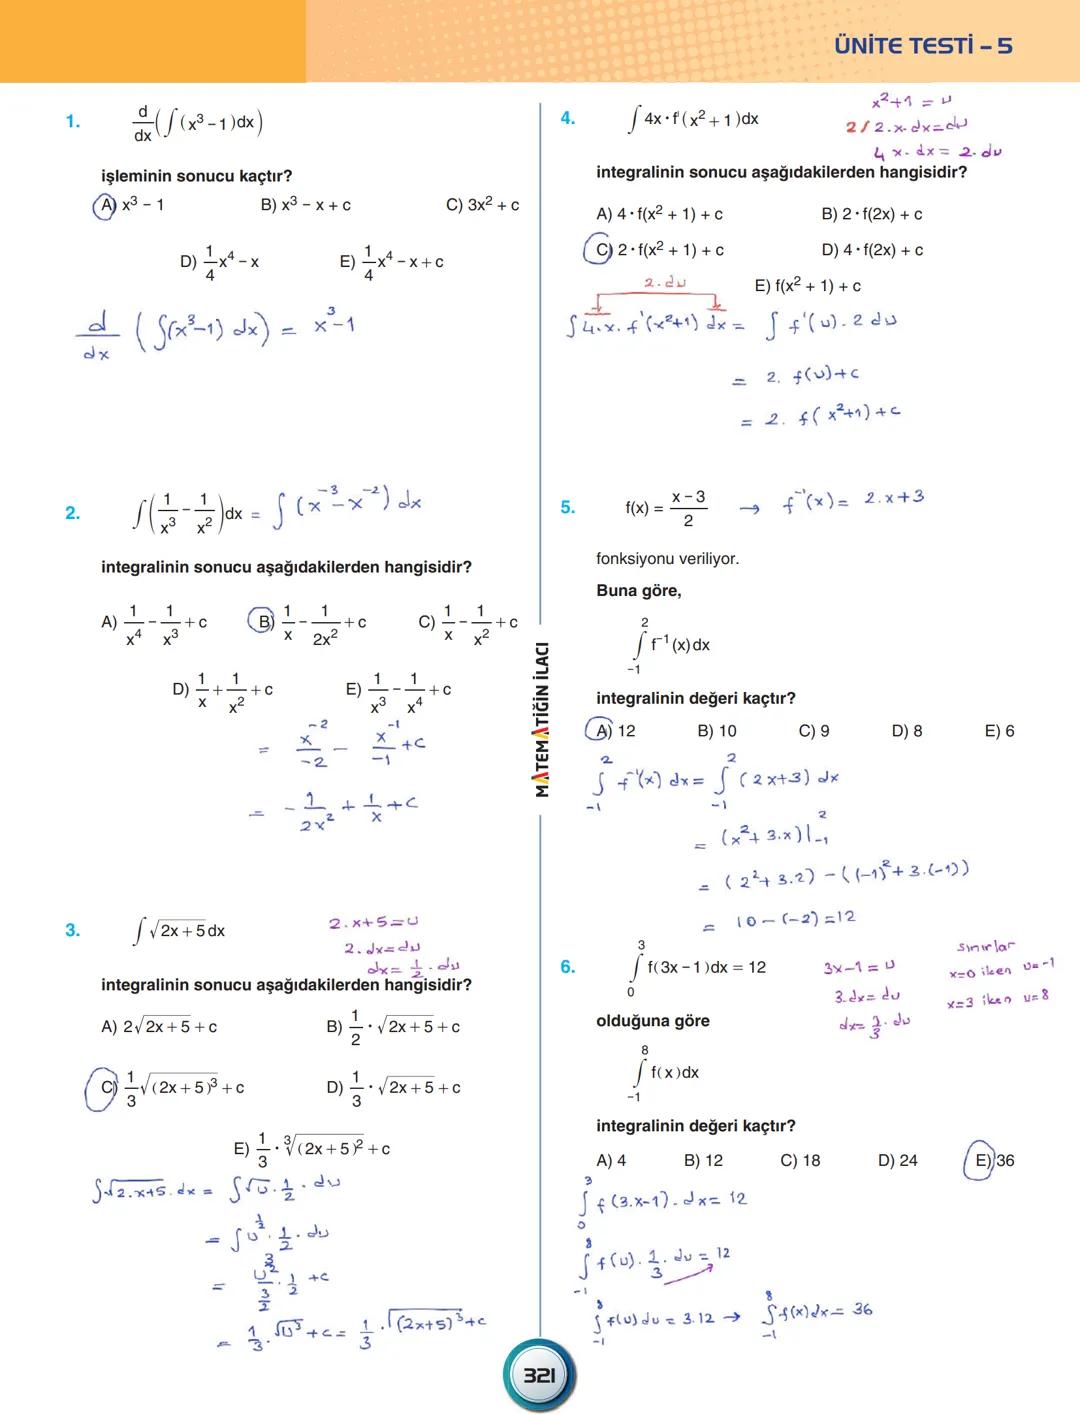 ÜNİTE TESTİ – 5
1.
d/dx (∫(x³ – 1)dx)
işleminin sonucu kaçtır?
A) x³ – 1 B) x³ – x + c C) 3x² + c
D) 1/4 x⁴ – x E) 1/4 x⁴ – x + c
d/dx (∫(x³–1) dx) = x³–1
2.
∫(1/x³ – 1/x²)dx = ∫(x⁻³ – x⁻²) dx
integralinin sonucu aşağıdakilerden hangisidir?
A) 1/x⁴ – 1/x³ + c B) 1/x – 1/2x² + c C) 1/x – 1/x² + c
D) 1/x + 1/x² + c E) 1/x³ – 1/x⁴ + c
= x⁻²/–2 – x⁻¹/–1 + c
= – 1/2x² + 1/x + c
3.
∫√(2x + 5) dx
2.x+5=u
2.dx=du
dx= 1/2 . du
integralinin sonucu aşağıdakilerden hangisidir?
A) 2√(2x + 5) + c B) 1/2 · √(2x + 5) + c
C) 1/3 √((2x + 5)³) + c D) 1/3 · √(2x + 5) + c
E) 1/3 · ∛((2x + 5)²) + c
∫√(2.x+5) . dx = ∫√u . 1/2 . du
= ∫u^(1/2) . 1/2 . du
= u^(3/2)/(3/2) . 1/2 + c
= 1/3 . √(u³) + c = 1/3 . √((2x+5)³) + c
MATEMATİĞİN İLACI
4.
∫4x · f'(x² + 1)dx
x²+1 = u
2/ 2.x.dx=du
4x.dx= 2.du
integralinin sonucu aşağıdakilerden hangisidir?
A) 4 · f(x² + 1) + c B) 2 · f(2x) + c
C) 2 · f(x² + 1) + c D) 4 · f(2x) + c
E) f(x² + 1) + c
2.du
∫4.x. f'(x²+1) dx = ∫f'(u). 2 du
= 2. f(u)+c
= 2. f(x²+1)+c
5.
f(x) = (x – 3)/2 → f⁻¹(x)= 2.x+3
fonksiyonu veriliyor.
Buna göre,
∫₋₁² f⁻¹(x) dx
integralinin değeri kaçtır?
A) 12 B) 10 C) 9 D) 8 E) 6
∫₋₁² f⁻¹(x) dx = ∫₋₁² (2x+3) dx
= (x²+3.x)|₋₁²
= (2²+3.2) – ((–1)²+3.(–1))
= 10–(–2)=12
6.
∫₀³ f(3x – 1)dx = 12
3x–1=u
3.dx=du
dx= 1/3 . du
sınırlar
x=0 iken u=–1
x=3 iken u=8
olduğuna göre
∫₋₁⁸ f(x)dx
integralinin değeri kaçtır?
A) 4 B) 12 C) 18 D) 24 E) 36
∫₀³ f(3.x–1).dx= 12
∫₋₁⁸ f(u). 1/3 . du = 12
∫₋₁⁸ f(u) du = 3.12 → ∫₋₁⁸ f(x)dx= 36
321